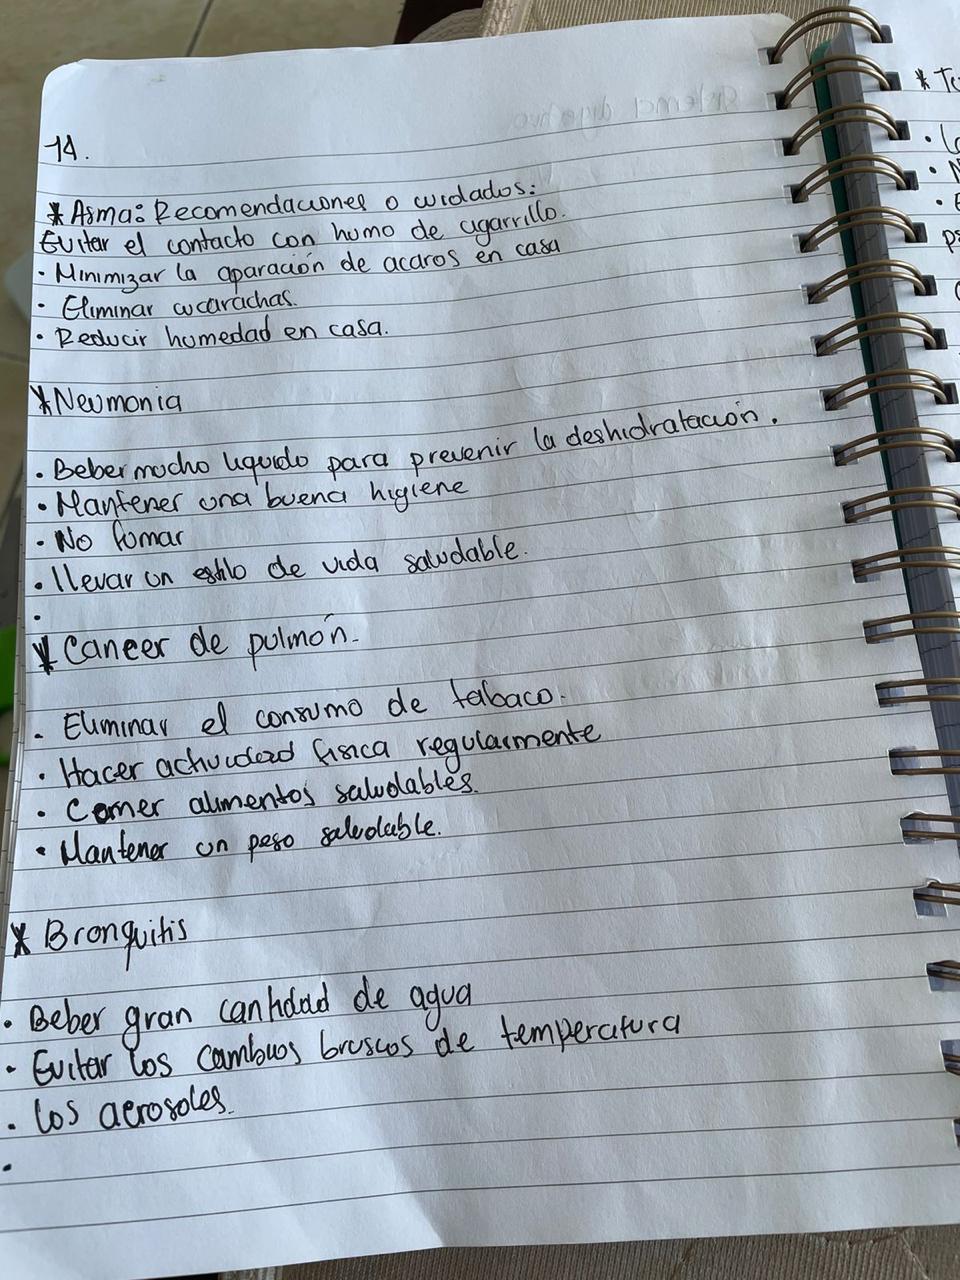 14.
* Asma: Recomendaciones o cuidados:
Evitar el contacto con humo de cigarrillo.
· Minimizar la aparación de acaros en casa
· Eliminar cucarachas.
· Reducir humedad en casa.
* Neumonia
· Beber mucho liquido para prevenir la deshidratación.
· Mantener una buena higiene
· No fumar
· llevar un estilo de vida saludable.
·
* Cancer de pulmón.
· Eliminar el consumo de tabaco.
· Hacer actividad fisica regularmente
· Comer alimentos saludables.
· Mantener un peso saludable.
* Bronquitis
· Beber gran cantidad de agua
· Evitar los cambios bruscos de temperatura
· los aerosoles.
·